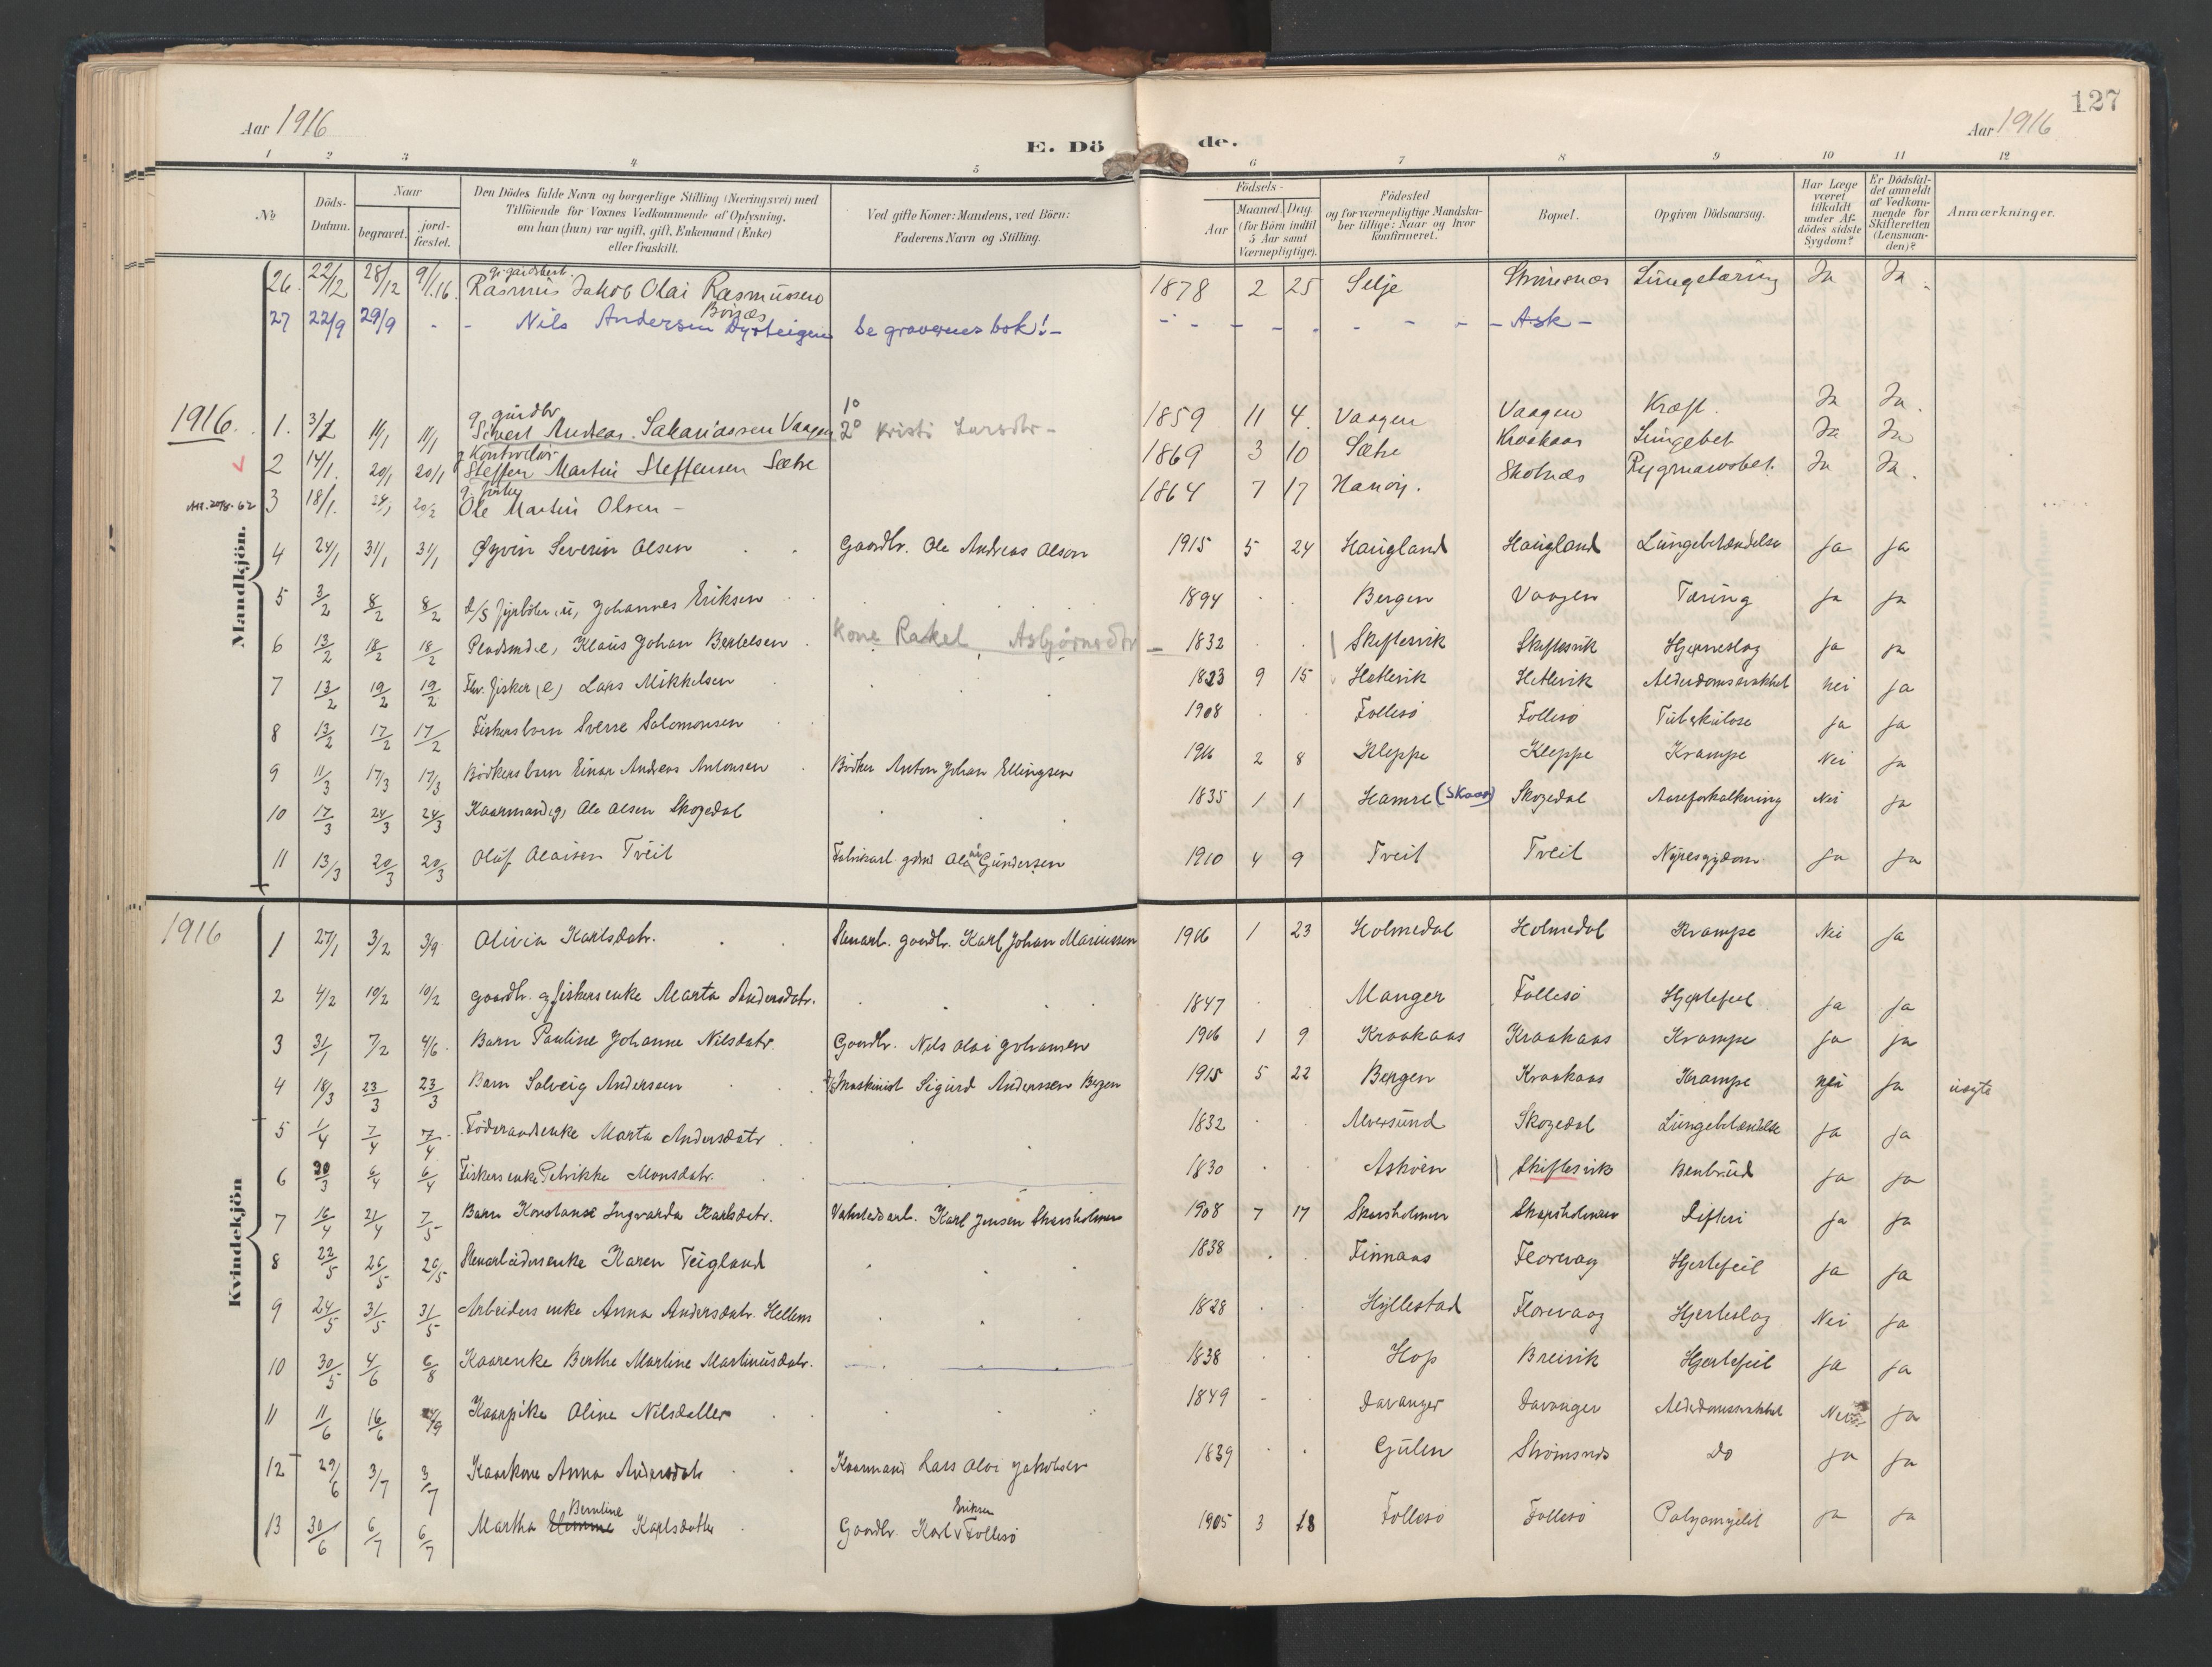 127
Aar 1916
E. Dö de.
Aar 1916
1 2 3 4 5 6 7 8 9 10 11 12
№
Döds-Datum.
Naar
begravet.
jord-fæstet.
Den Dödes fulde Navn og borgerlige Stilling (Næringsvei) med
Tilföiende for Voxnes Vedkommende af Oplysning,
om han (hun) var ugift, gift, Enkemand (Enke)
eller fraskilt.
Ved gifte Koner: Mandens, ved Börn:
Faderens Navn og Stilling.
Födsels-
Aar
Maaned. Dag.
(for Börn indtil
5 Aar samt
Værnepligtige).
Födested
og for værnepligtige Mandska-
ber tillige: Naar og hvor
konfirmeret.
Bopæl.
Opgiven Dödsaarsag.
Har Læge
været
tilkaldt
under Af-
dödes sidste
Sygdom?
Er Dödsfal-
det anmeldt
af Vedkom-
mende for
Skifteretten
(Lensman-
den)?
Anmærkninger.
26. 22/12 28/12 9/1.16. Rasmus Jakob Olai Rasmussen 1878 2 25 Selje Lungetæring Ja Ja
27 22/9 29/9 - - Nils Andersen Dyrteigen se gravernes bok! - Ask -
Mandkjön.
1916.
1. 11/1 11/1 Sivert Andreas Sakariassen Vaagen 1° 2° Kristi Larsdtr - 1859 11 4. Vaagen Vaagen Kræft. Ja Ja.
2 14/1. 20/1 20/1 Steffen Martin Steffensen Sætre 1869 3 10 Sætre Kraakaas Lungebet Ja Ja
3 18/1. Ole Martin Olsen - 1864 7 17 Skotnæs Ja Ja.
4 24/1 31/1 31/1 Øyvin Severin Olsen Gaardbr. Ole Andreas Olson 1915 5 24 Haugland Haugland Lungebetændelse ja ja
5 3/2 8/2 8/2 Johannes Eriksen 1894 Bergen Vaagen Tæring ja ja
6 13/2 18/2 18/2 Pladsmd e, Klaus Johan Bertelsen Kone Rakel Asbjørnsdtr - 1832 Skiftesvik Skiftesvik Hjerneslag ja ja
7 13/2 19/2 19/2 Fhv. fisker (e) Lars Mikkelsen 1823 9 15 Hetlevik Hetlevik Alderdomssvakhet nei ja
8 13/2 17/2 17/2 Fiskersbarn Sverre Salomonsen 1908 Follesö Follesö Tuberkulose ja ja
9 11/3 17/3 17/3 Bödkersbarn Einar Andreas Antonsen Bödker Anton Johan Ellingsen 1916 2 8 Kleppe Kleppe Krampe Nei ja
10 17/3 24/3 24/3 Kaarmand, g, Ole Olsen Skogedal 1835 1 1 Hamre (Skaar) Skogedal Aareforkalkning Nei ja
11 13/3 20/3 20/3 Oluf Olaisen Tveit Fabrikarb. gdmd Olai Gundersen 1910 4 9 Tveit Tveit Nyresygdom ja ja
Kvindekjön
1916
1 27/1 3/2 3/9 Olivia Karlsdatr. Stenarb. gaardbr. Karl Johan Mariussen 1916 1 23 Holmedal Holmedal Krampe Nei ja
2 4/2 10/2 10/2 gaardbr. og fiskers enke Marta Andersdatr. 1847 Manger Follesö Hjertefeil ja ja
3 31/1 7/2 4/6 Barn Pauline Johanne Nilsdatr. Gaardbr. Nils Olai Johansen 1916 1 9 Kraakaas Kraakaas Krampe ja ja
4 18/3 23/3 23/3 Barn Solveig Anderssen Maskinist Sigurd Anderssen Bergen 1915 5 22 Bergen Kraakaas Krampe nei ja uegte
5 1/4 7/4 7/4 Föderaadsenke Marta Andersdatr 1832 Alversund Skogedal Lungebetændelse ja ja
6 30/3 6/4 6/4 Fiskers enke Petrikke Monsdatr. 1830 Askøen Skiftesvik Benbrud ja ja
7 16/4 21/4 7/5 Barn Konstanse Ingvarda Karlsdatr. Karl Jensen Skarsholmen 1908 7 17 Skarsholmen Skarsholmen Difteri ja ja
8 22/5 26/5 26/5 Stenarbeidersenke Karen Teigland 1838 Finnaas Florvaag Hjertefeil ja ja
9 24/5 31/5 31/5 Arbeiders enke Anna Andersdatr. Hellem 1828 Hyllestad Florevaag Hjerteslag Nei ja
10 30/5 4/6 6/8 Kaarenke Berthe Martine Martinusdatr. 1838 Hop Breivik Hjertefeil ja ja
11 11/6 16/6 Kaarpike Oline Nilsdatter 1849 Davanger Davanger Alderdomssvakhet Nei ja
12 29/6 3/7 3/7 Kaarkone Anna Andersdatr Kaarmand Lars Olai Jakobsen 1839 Gulen Strömsnes Do ja ja
13 30/6 6/7 6/7 Martha Berntine Karlsdatter Gaardbr. Karl Eriksen Follesö 1905 3 18 Follesö Follesö Polyomyelit ja ja